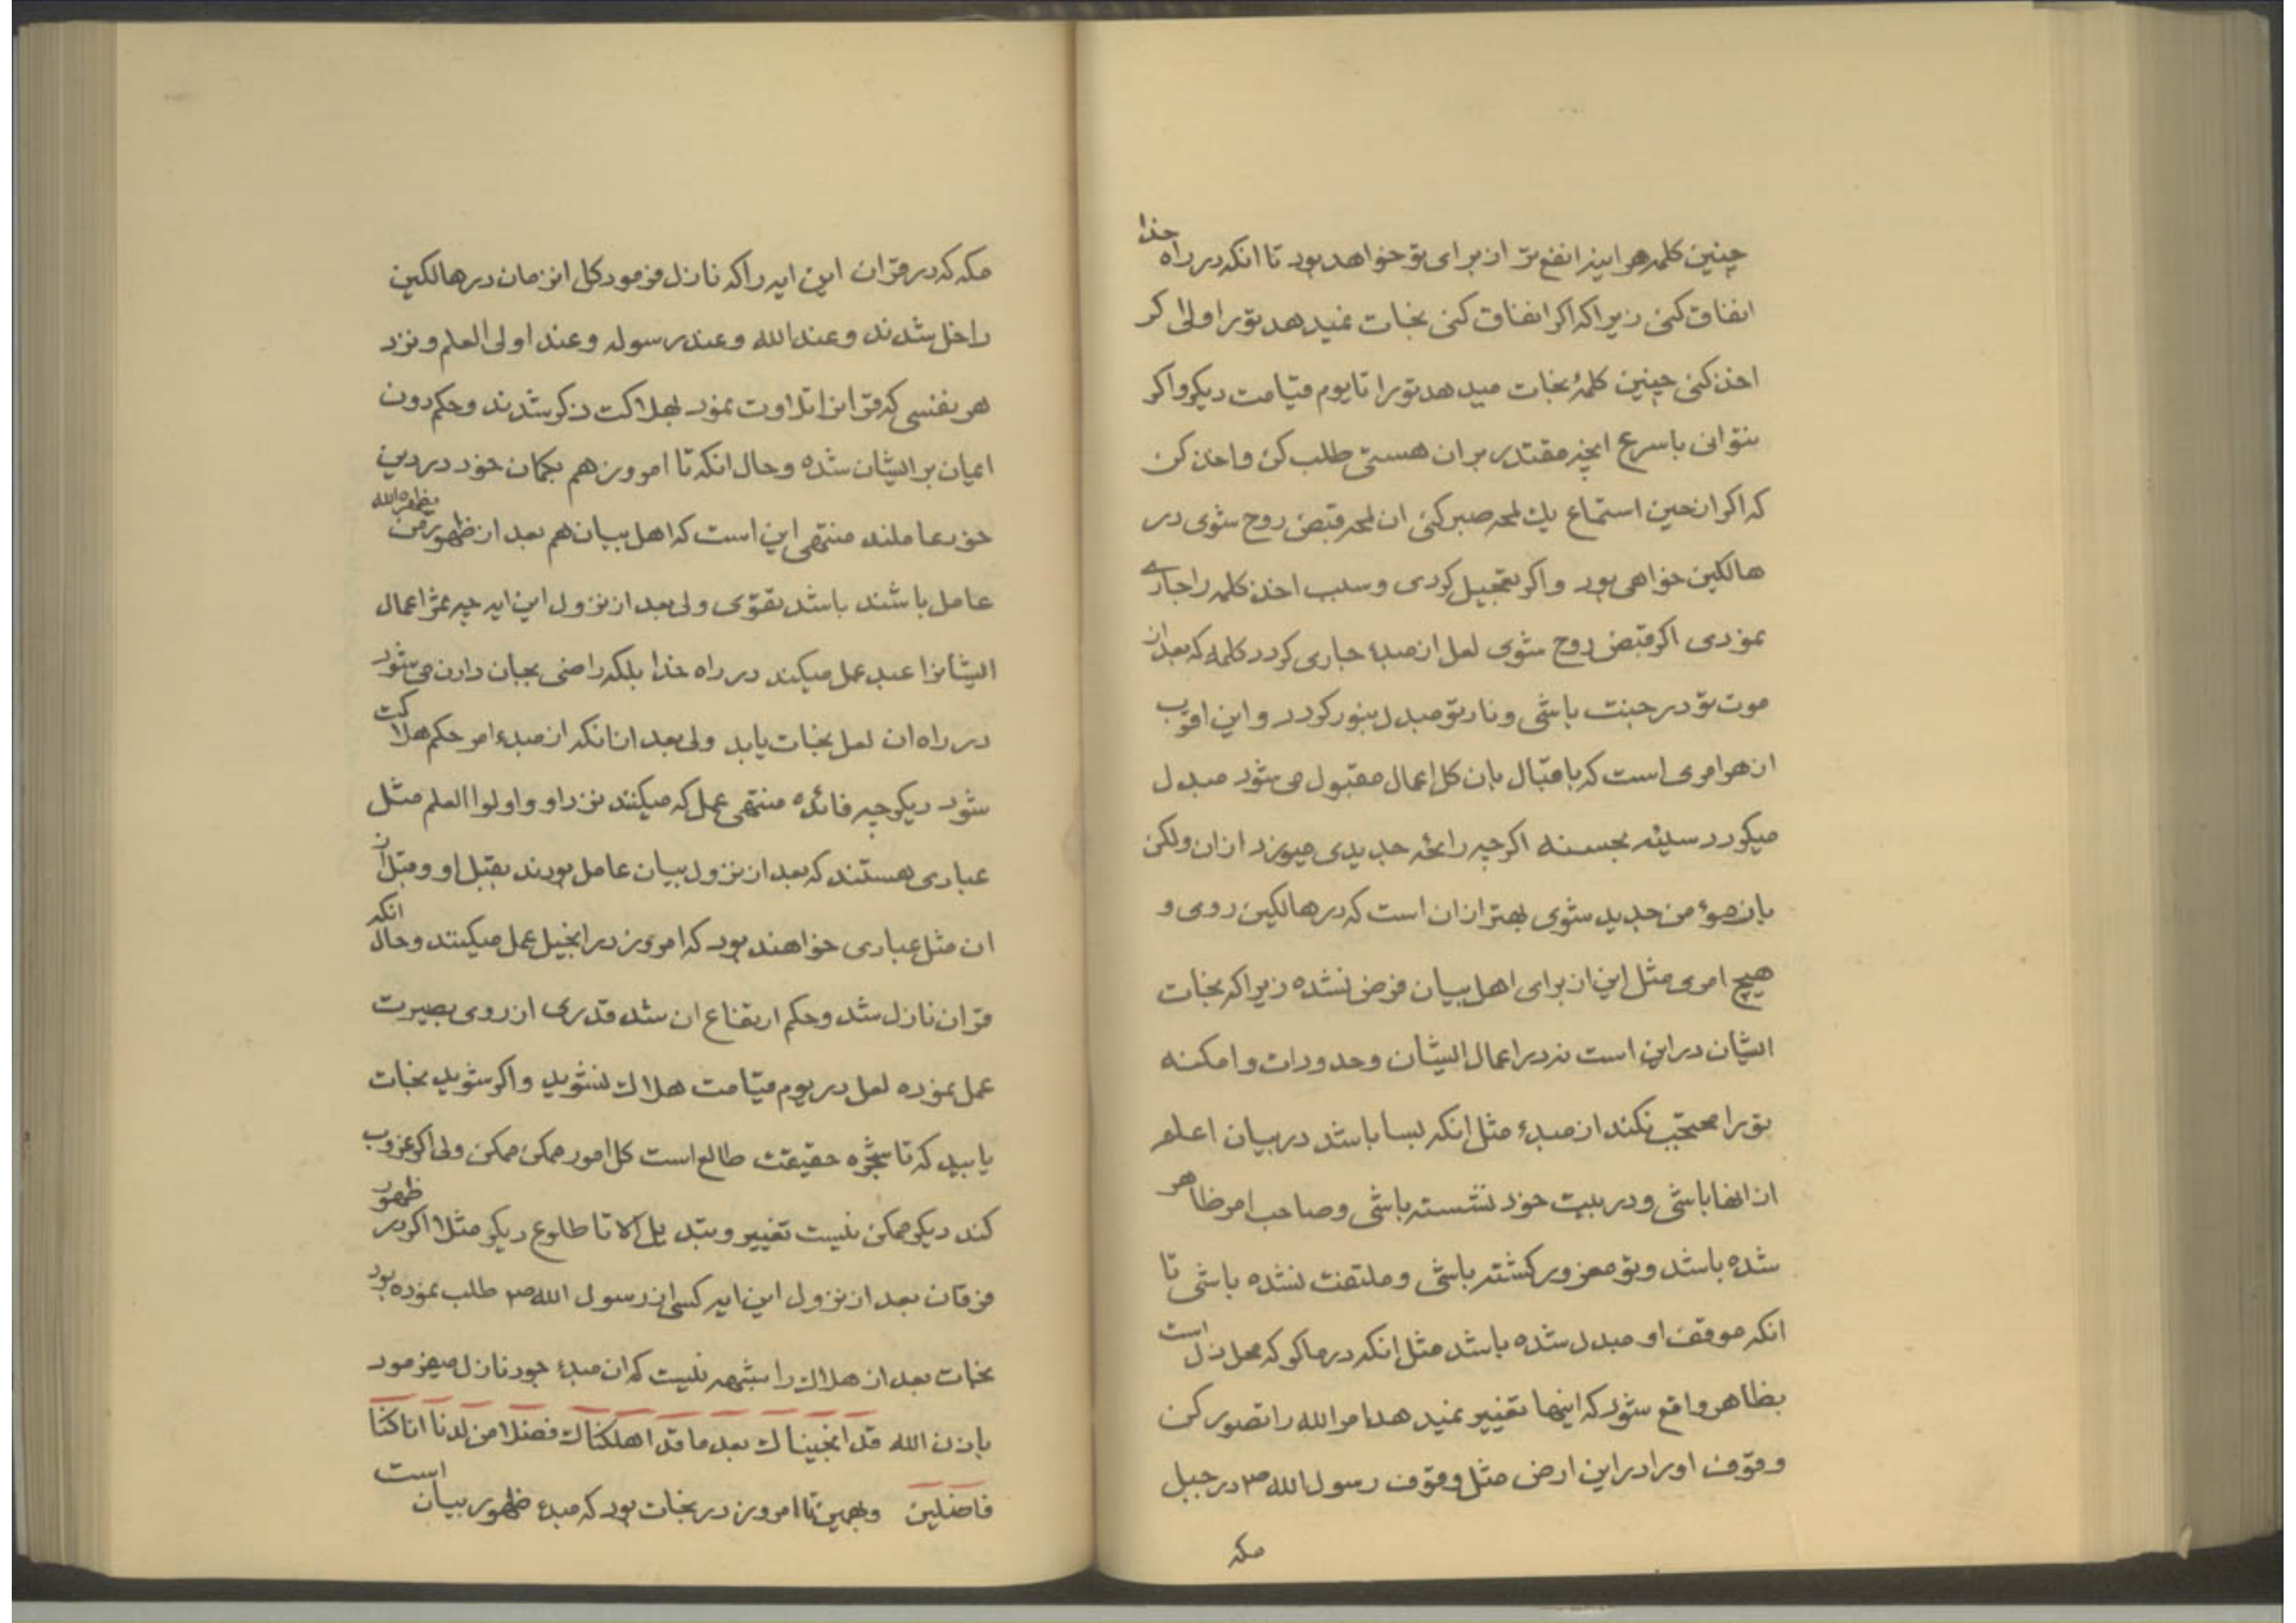 چنین کلمه هر اینه انفع تر از برای تو خواهد بود تا انکه در راه خدا
انفاق کنی زیرا که اکر انفاق کنی نجات نمیدهد تو را ولی اکر
اخذ کنی چنین کلمهٔ نجات میدهد تو را تا یوم قیامت دیکر و اکر
بتوانی باسرع انچه مقتدر بر ان هستی طلب کن و اخذ کن
که اکر از حین استماع یک لمحه صبر کنی ان لمحه قبض روح شوی در
هالکین خواهی بود و اکر تعجیل کردی و سبب اخذ کلمه را جاری
نمودی اکر قبض روح شوی لعل از مبدء جاری کردد کلمه که بعد از
موت تو در جنت باشی و نار تو مبدل بنور کردد و این اقرب
از هر امری است که باقبال بان کل اعمال مقبول می شود مبدل
میکردد سیئه بحسنه اکر چه رائحه جدیدی میوزد از ان ولکن
بان مؤمن جدید شوی بهتر از ان است که در هالکین روی و
هیچ امری مثل این از برای اهل بیان فرض نشده زیرا که نجات
ایشان در این است نه در اعمال ایشان و حدودات و امکنه
تو را محتجب نکند از مبدء مثل انکه بسا باشد در بیان اعلم
از انها باشی و در بیت خود نشسته باشی و صاحب امر ظاهر
شده باشد و تو مغرور کشته باشی و ملتفت نشده باشی تا
انکه موقف او مبدل شده باشد مثل انکه در ماکو که محل ذل است
بظاهر واقع شود که اینها تغییر نمیدهد امر الله را تصور کن
وقوف او را در این ارض مثل وقوف رسول الله ص در جبل
مکه
مکه که در قران این ایه را که نازل فرمود کل انزمان در هالکین
داخل شدند و عند الله و عند رسوله و عند اولی العلم و نزد
هر نفسی که قرانرا تلاوت نمود بهلاکت ذکر شدند و حکم دون
ایمان بر ایشان شده و حال انکه تا امروز هم بکمان خود در دین
خود عاملند منتهی این است که اهل بیان هم بعد از ظهور من یظهره الله
عامل باشند باشد تقوی ولی بعد از نزول این ایه چه ثمر اعمال
ایشانرا عبد عمل میکند در راه خدا بلکه راضی بجان دادن می شود
در راه ان لعل نجات یابد ولی بعد از انکه از مبدء امر حکم هلاکت
شود دیکر چه فائده منتهی عمل که میکنند نزد او و اولوا العلم مثل
عبادی هستند که بعد از نزول بیان عامل بودند بقبل او و قبل از
ان مثل عبادی خواهند بود که امروز در انجیل عمل میکنند و حال انکه
قران نازل شد و حکم ارتفاع ان شد قدری از روی بصیرت
عمل نموده لعل در یوم قیامت هلاک نشوید و اکر شوید نجات
یابید که تا شجره حقیقت طالع است کل امور ممکن ممکن ولی اکر غروب
کند دیکر ممکن نیست تغییر و تبدیل الا تا طلوع دیکر مثلا اکر در ظهور
فرقان بعد از نزول این ایه کسی از رسول الله ص طلب نموده بود
نجات بعد از هلاک را شبهه نیست که ان مبدء جود نازل میفرمود
باذن الله قد انجیناک بعد ما قد اهلکناک فضلا من لدنا انا کنا
فاضلین و بهمین تا امروز در نجات بود که مبدء ظهور بیان است